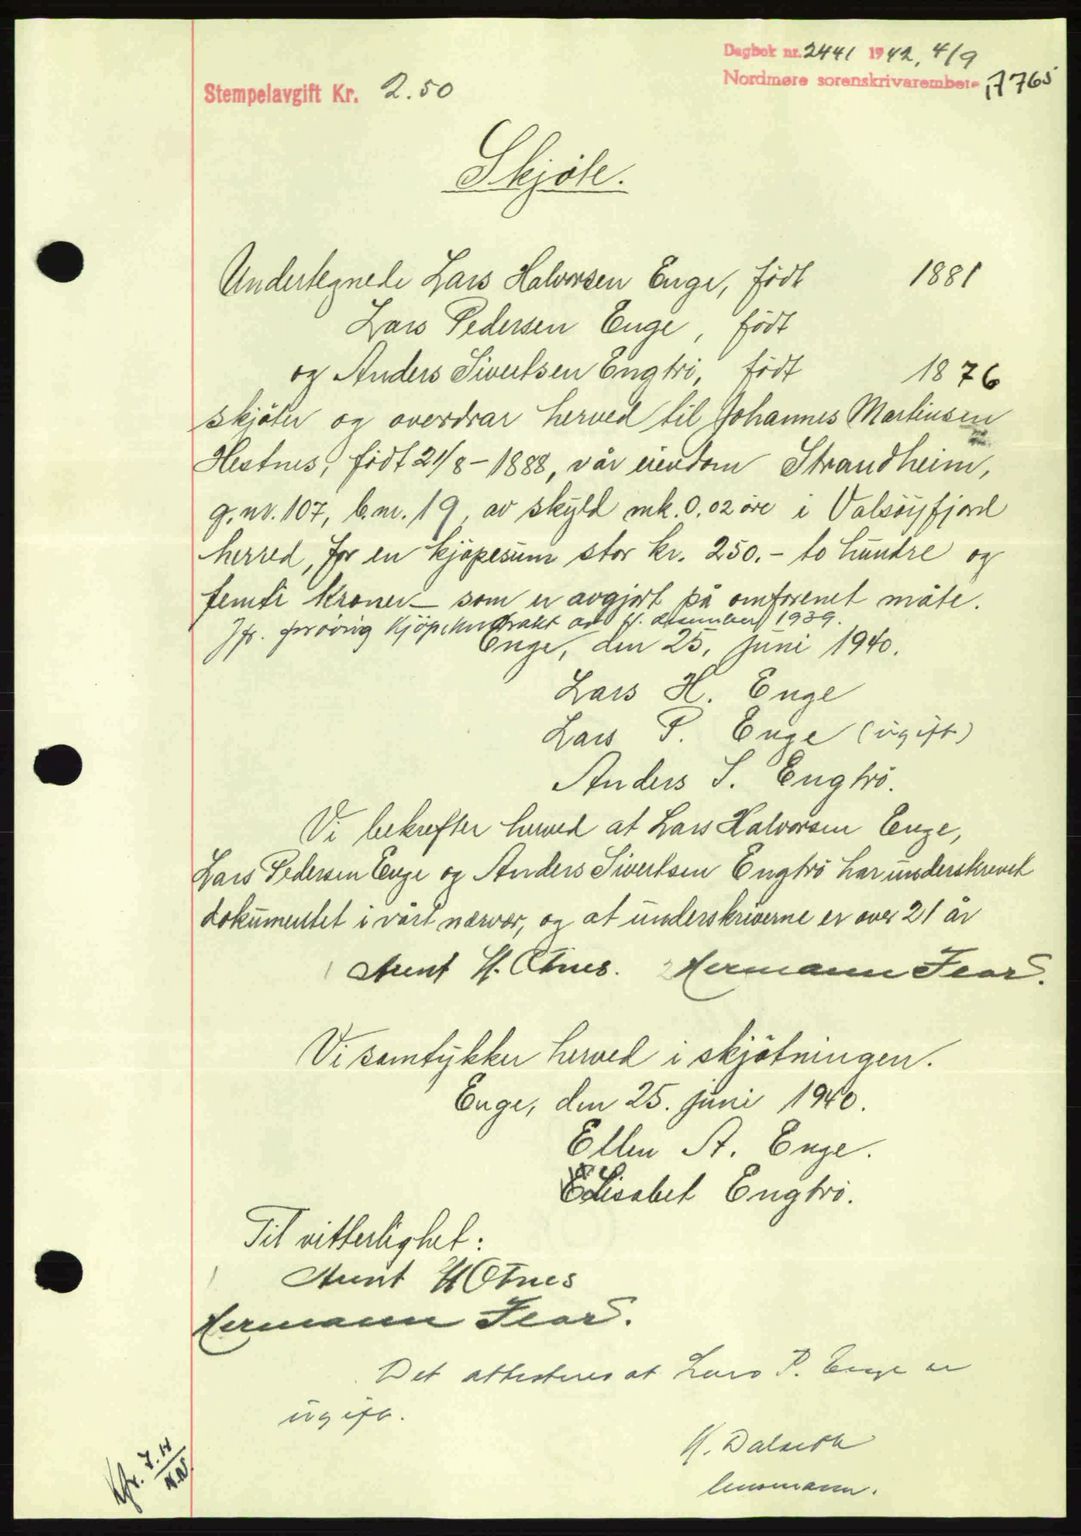 Dagbok nr. 2441 1942, 4/9
Stempelavgift Kr. 2.50
Nordmøre sorenskrivarembete 7765
Skjøte.
Undertegnede Lars Halvorsen Enge, født 1881
Lars Pedersen Enge, født
og Anders Sivertsen Engtrö, født 1876
skjøter og overdrar herved til Johannes Martinsen
Hestnes, født 21/8-1888, vår eiendom Strandheim,
g.nr. 107, b.nr. 19, av skyld mk. 0.02 øre i Valsöyfjord
herred, for en kjøpesum stor kr. 250.- to hundre og
femti kroner - som er avgjort på omforenet måte.
Jfr. forøvrig kjøpekontrakt av desember 1939.
Enge, den 25. juni 1940.
Lars H. Enge
Lars P. Enge (ugift)
Anders S. Engtrö.
Vi bekrefter herved at Lars Halvorsen Enge,
Lars Pedersen Enge og Anders Sivertsen Engtrö har underskrevet
dokumentet i vårt nærvær, og at underskriverne er over 21 år
Arnt H. Otnes. Hermann Fear.
Vi samtykker herved i skjøtningen.
Enge, den 25. juni 1940.
Ellen A. Enge.
Elisabet Engtrö.
Til vitterlighet:
Arnt H Otnes
Hermann Fear.
Det attesteres at Lars P. Enge er
ugift.
H. Dalseth
lensmann.
Kfr. 7.H
N.N.